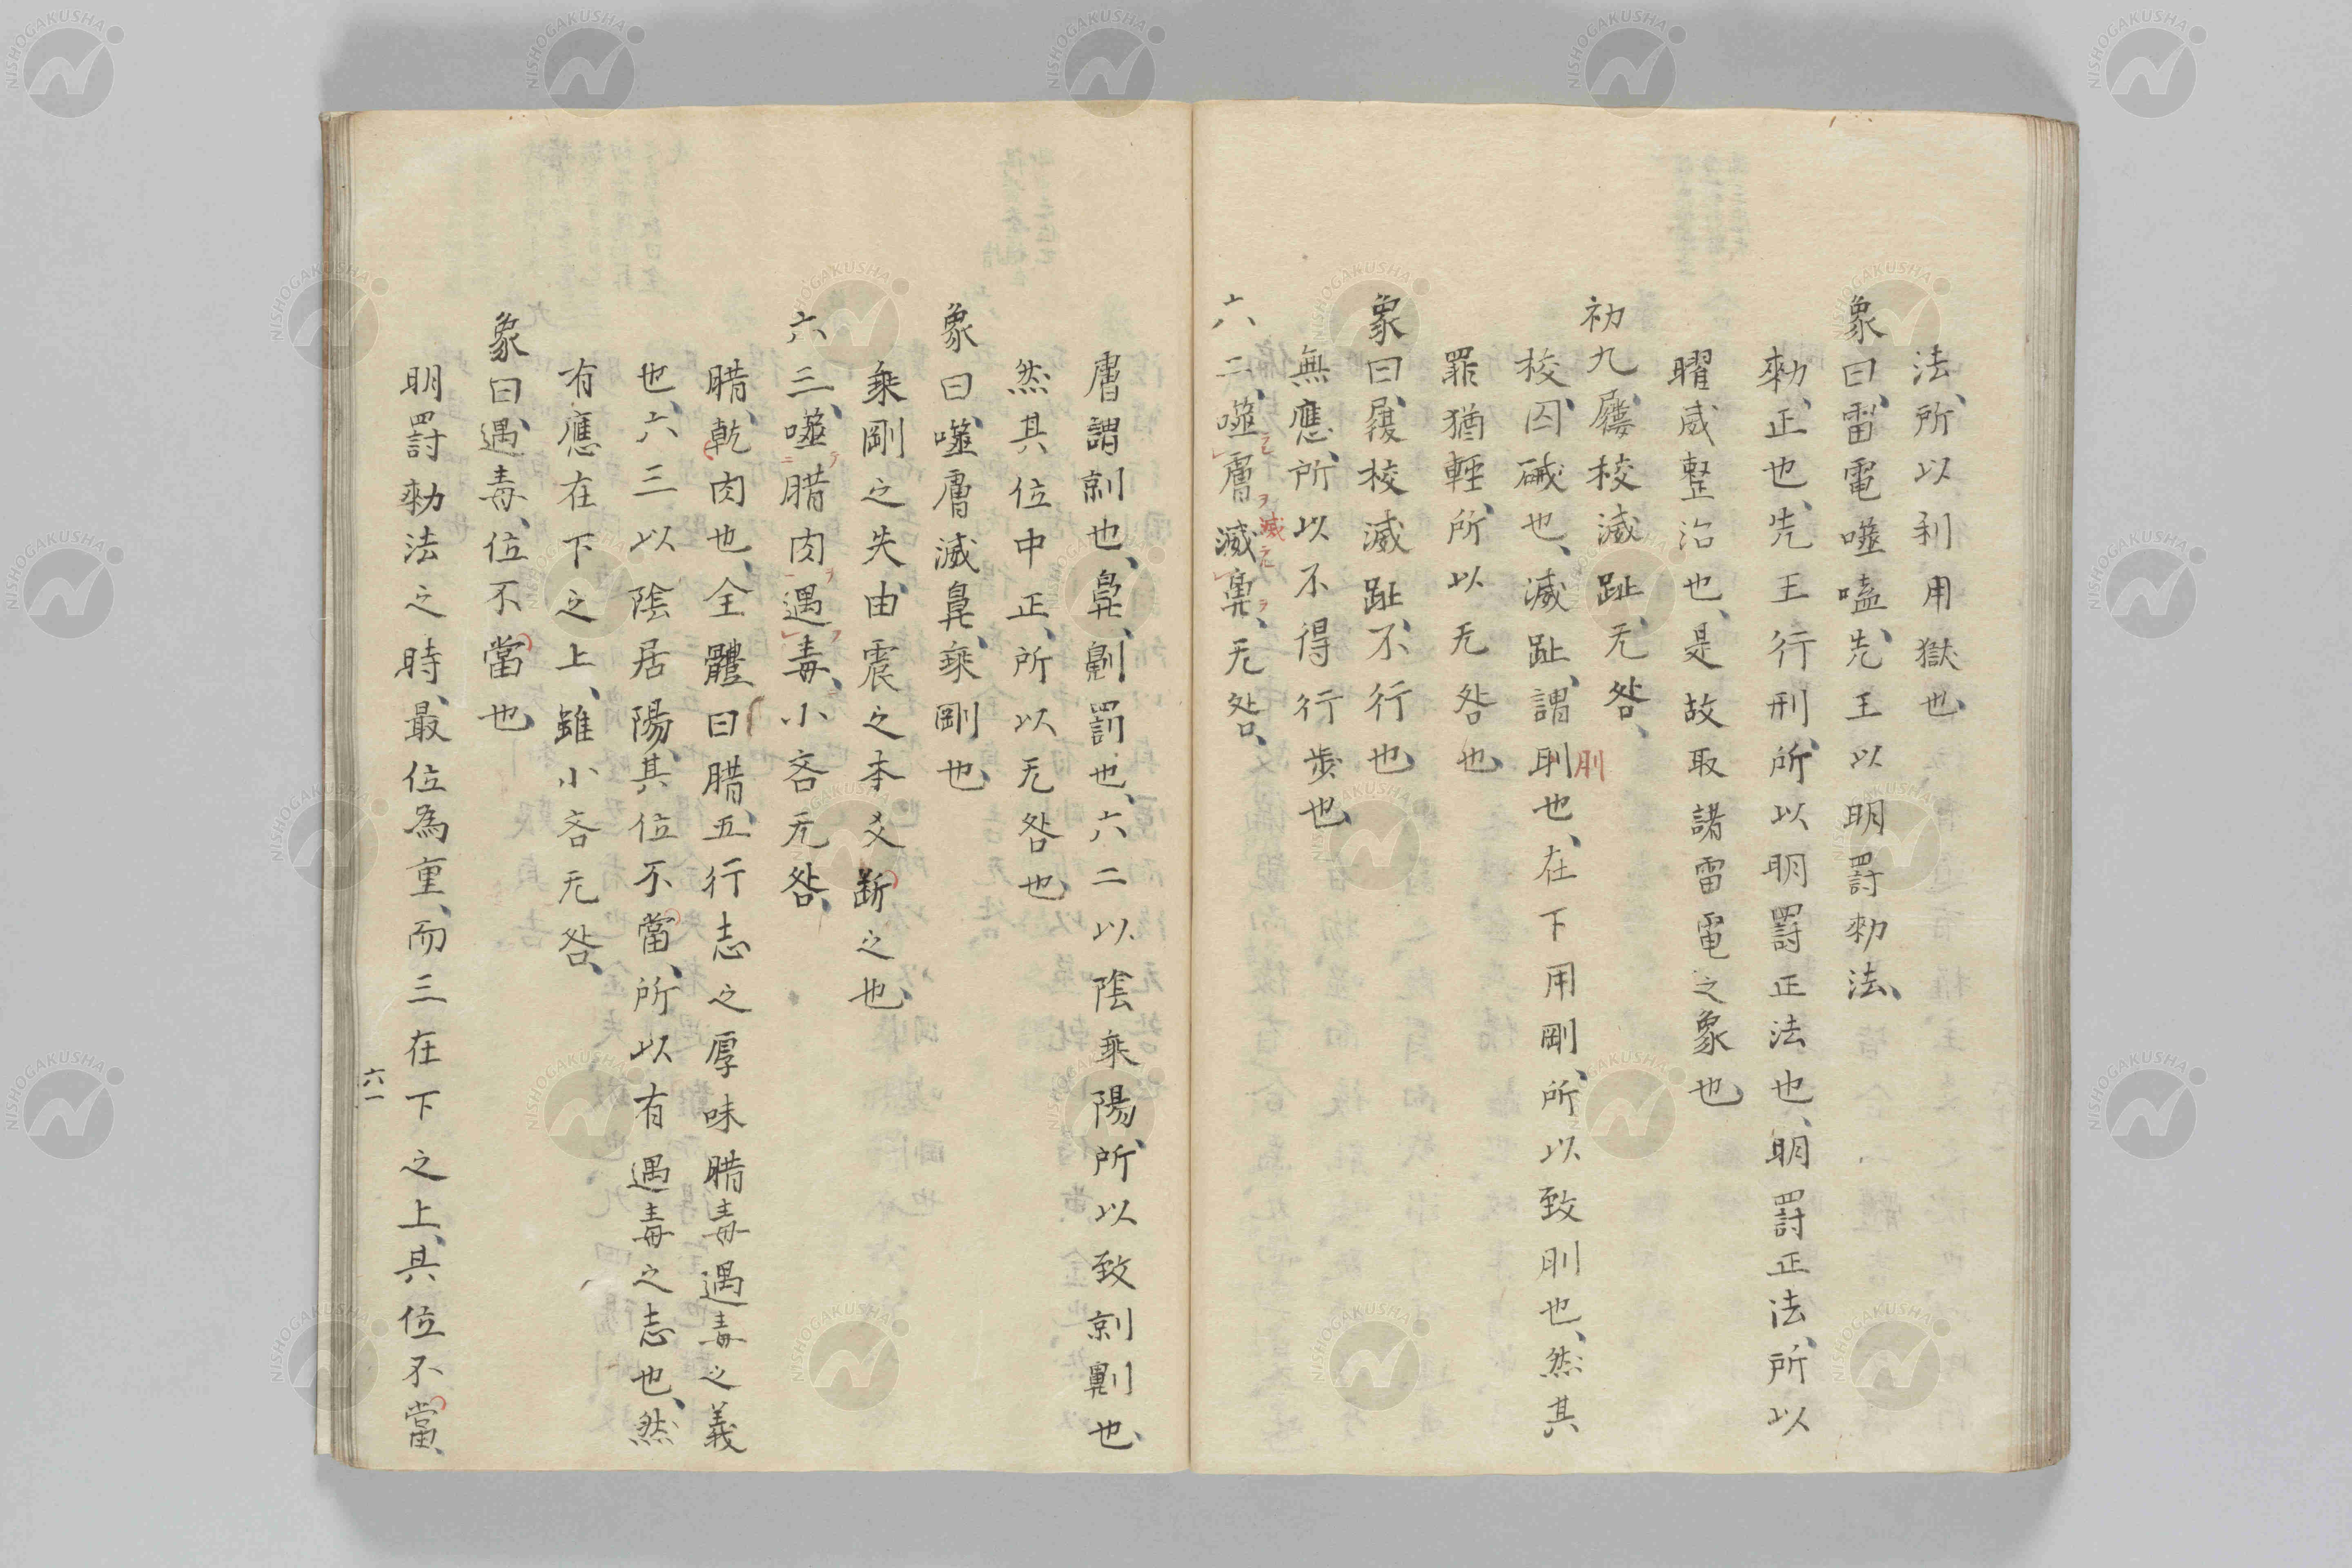 法、所以利用獄也、
象曰、雷電噬嗑、先王以明罰勑法、
勑、正也、先王行刑、所以明罰正法也、明罰正法、所以
曜威整治也、是故取諸雷電之象也、
初九、屨校滅趾、无咎、
校、囚械也、滅趾、謂刖也、在下用剛、所以致刖也、然其
刖
罪猶輕、所以无咎也、
象曰、屨校滅趾、不行也、
無應、所以不得行步也、
六二、噬膚滅鼻、无咎、
膚謂剠也、鼻、劓罰也、六二以陰乗陽、所以致剠劓也、
然其位中正、所以无咎也、
象曰、噬膚滅鼻、乗剛也、
乗剛之失、由震之本爻断之也、
六三、噬腊肉遇毒、小吝无咎、
腊、乾肉也、全體曰腊、五行志之厚味腊毒遇毒之義
也、六三以陰居陽、其位不當、所以有遇毒之志也、然
有應在下之上、雖小吝无咎、
象曰、遇毒、位不當也、
明罰勑法之時、最位為重、而三在下之上、其位不當、
六一
NISHOGAKUSHA